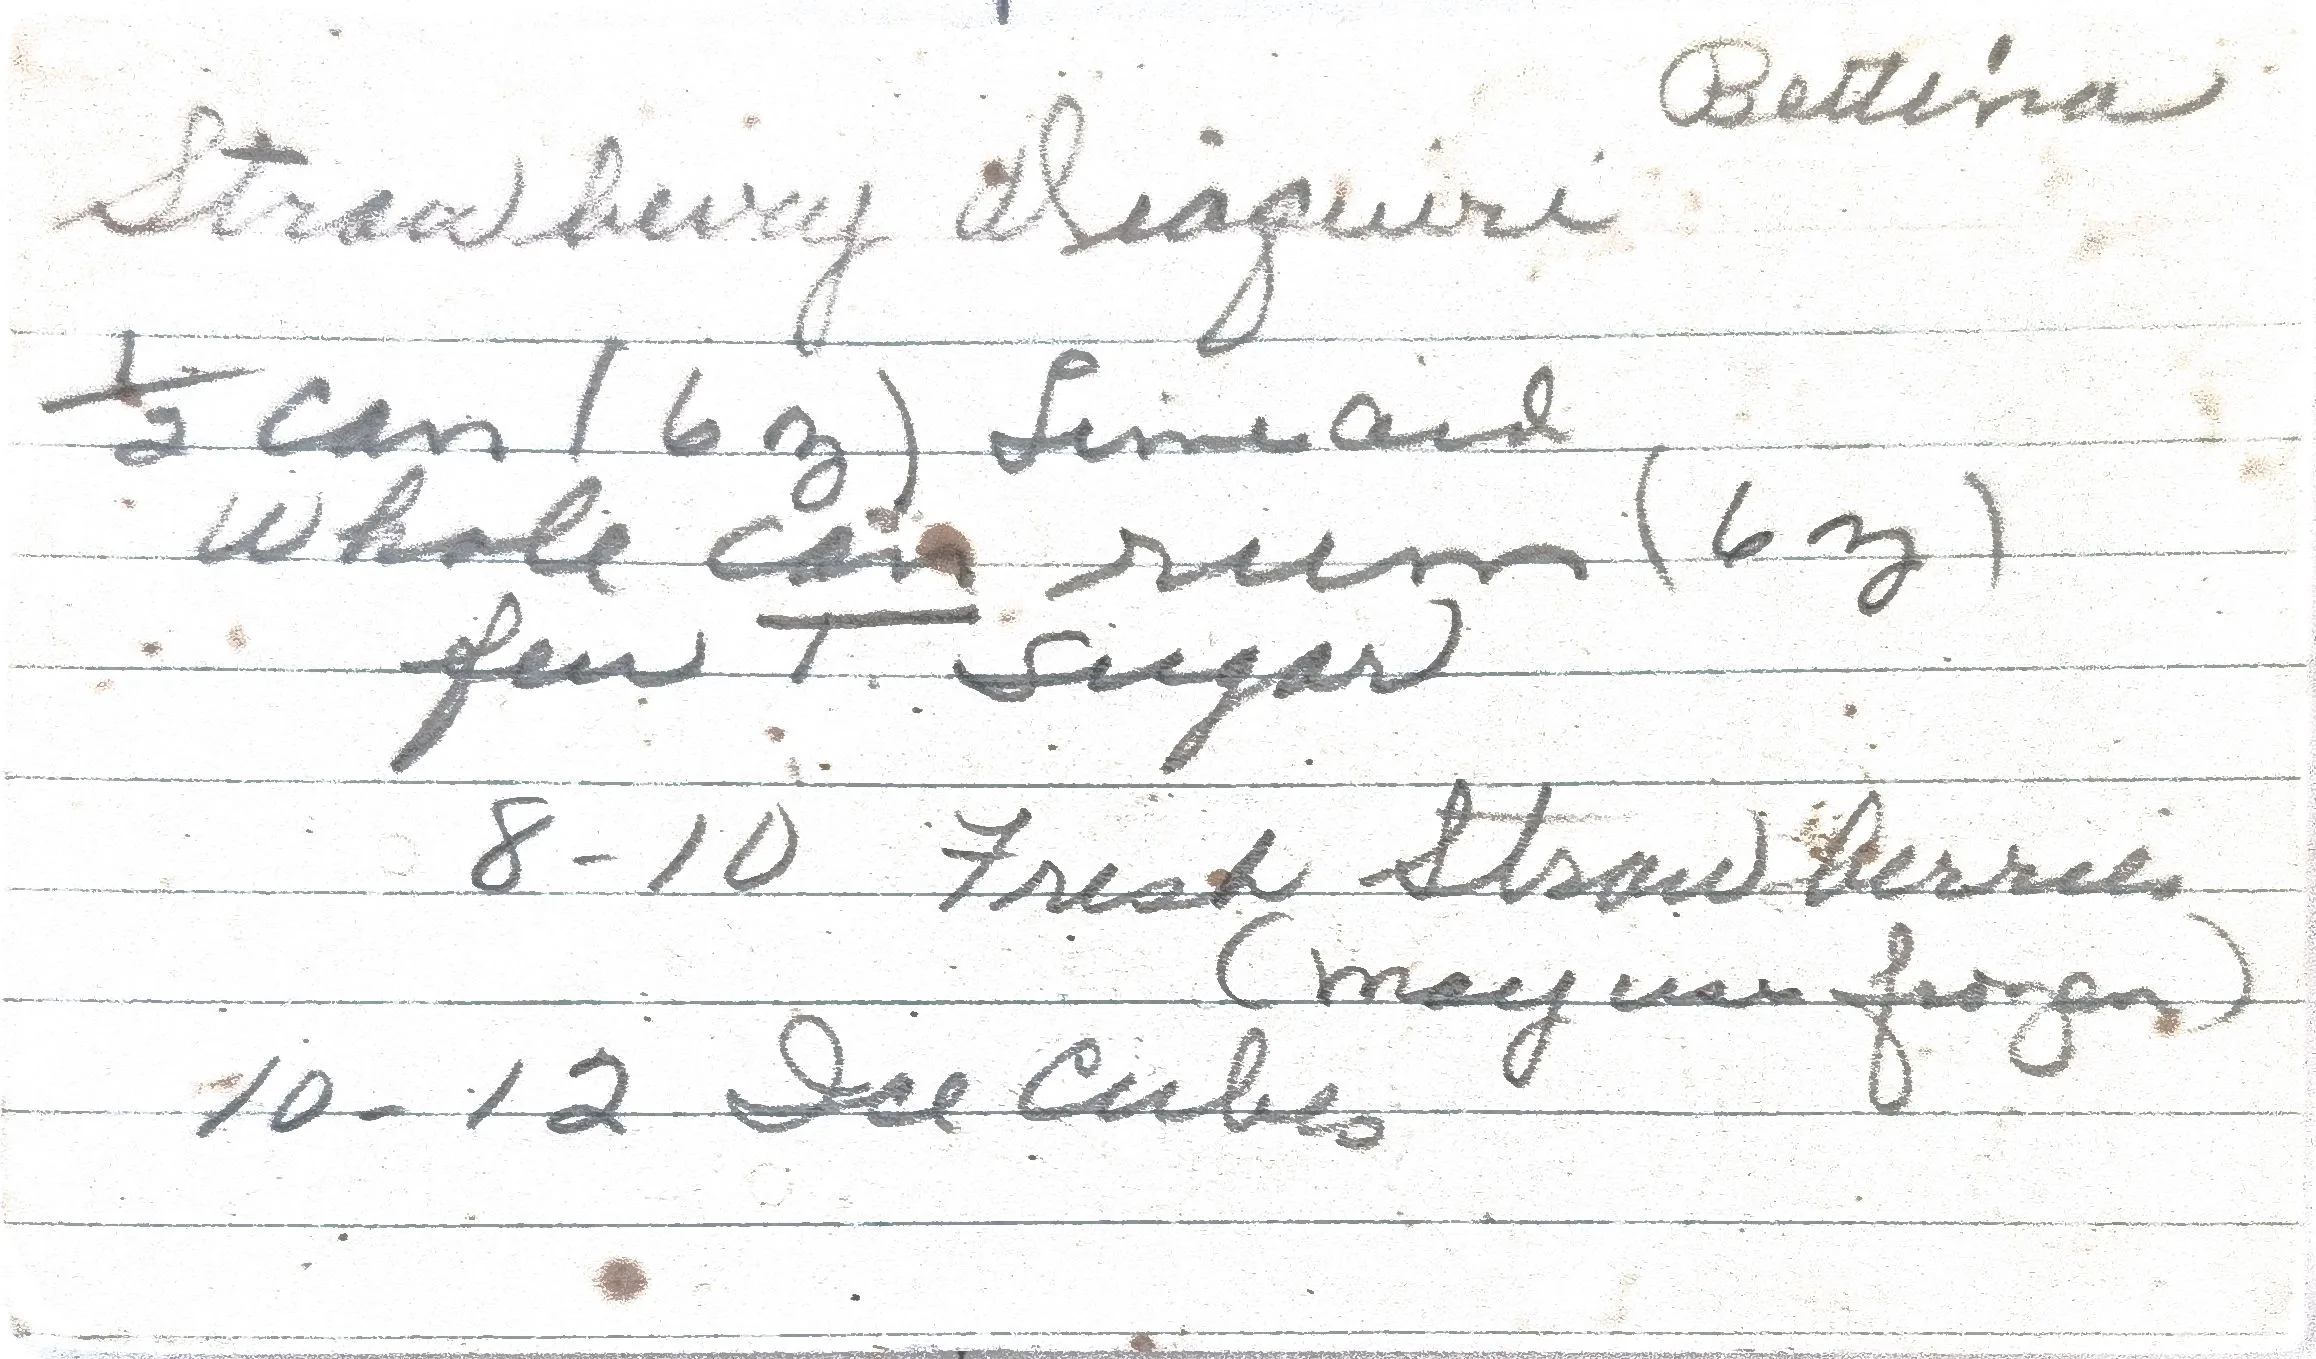 Bettina
Strawberry diaquiri
1/2 can (6 oz) Limeaid
whole can rum (6 oz)
few T sugar
8-10 Fresh Strawberries
(may use frozen)
10-12 Ice Cubes